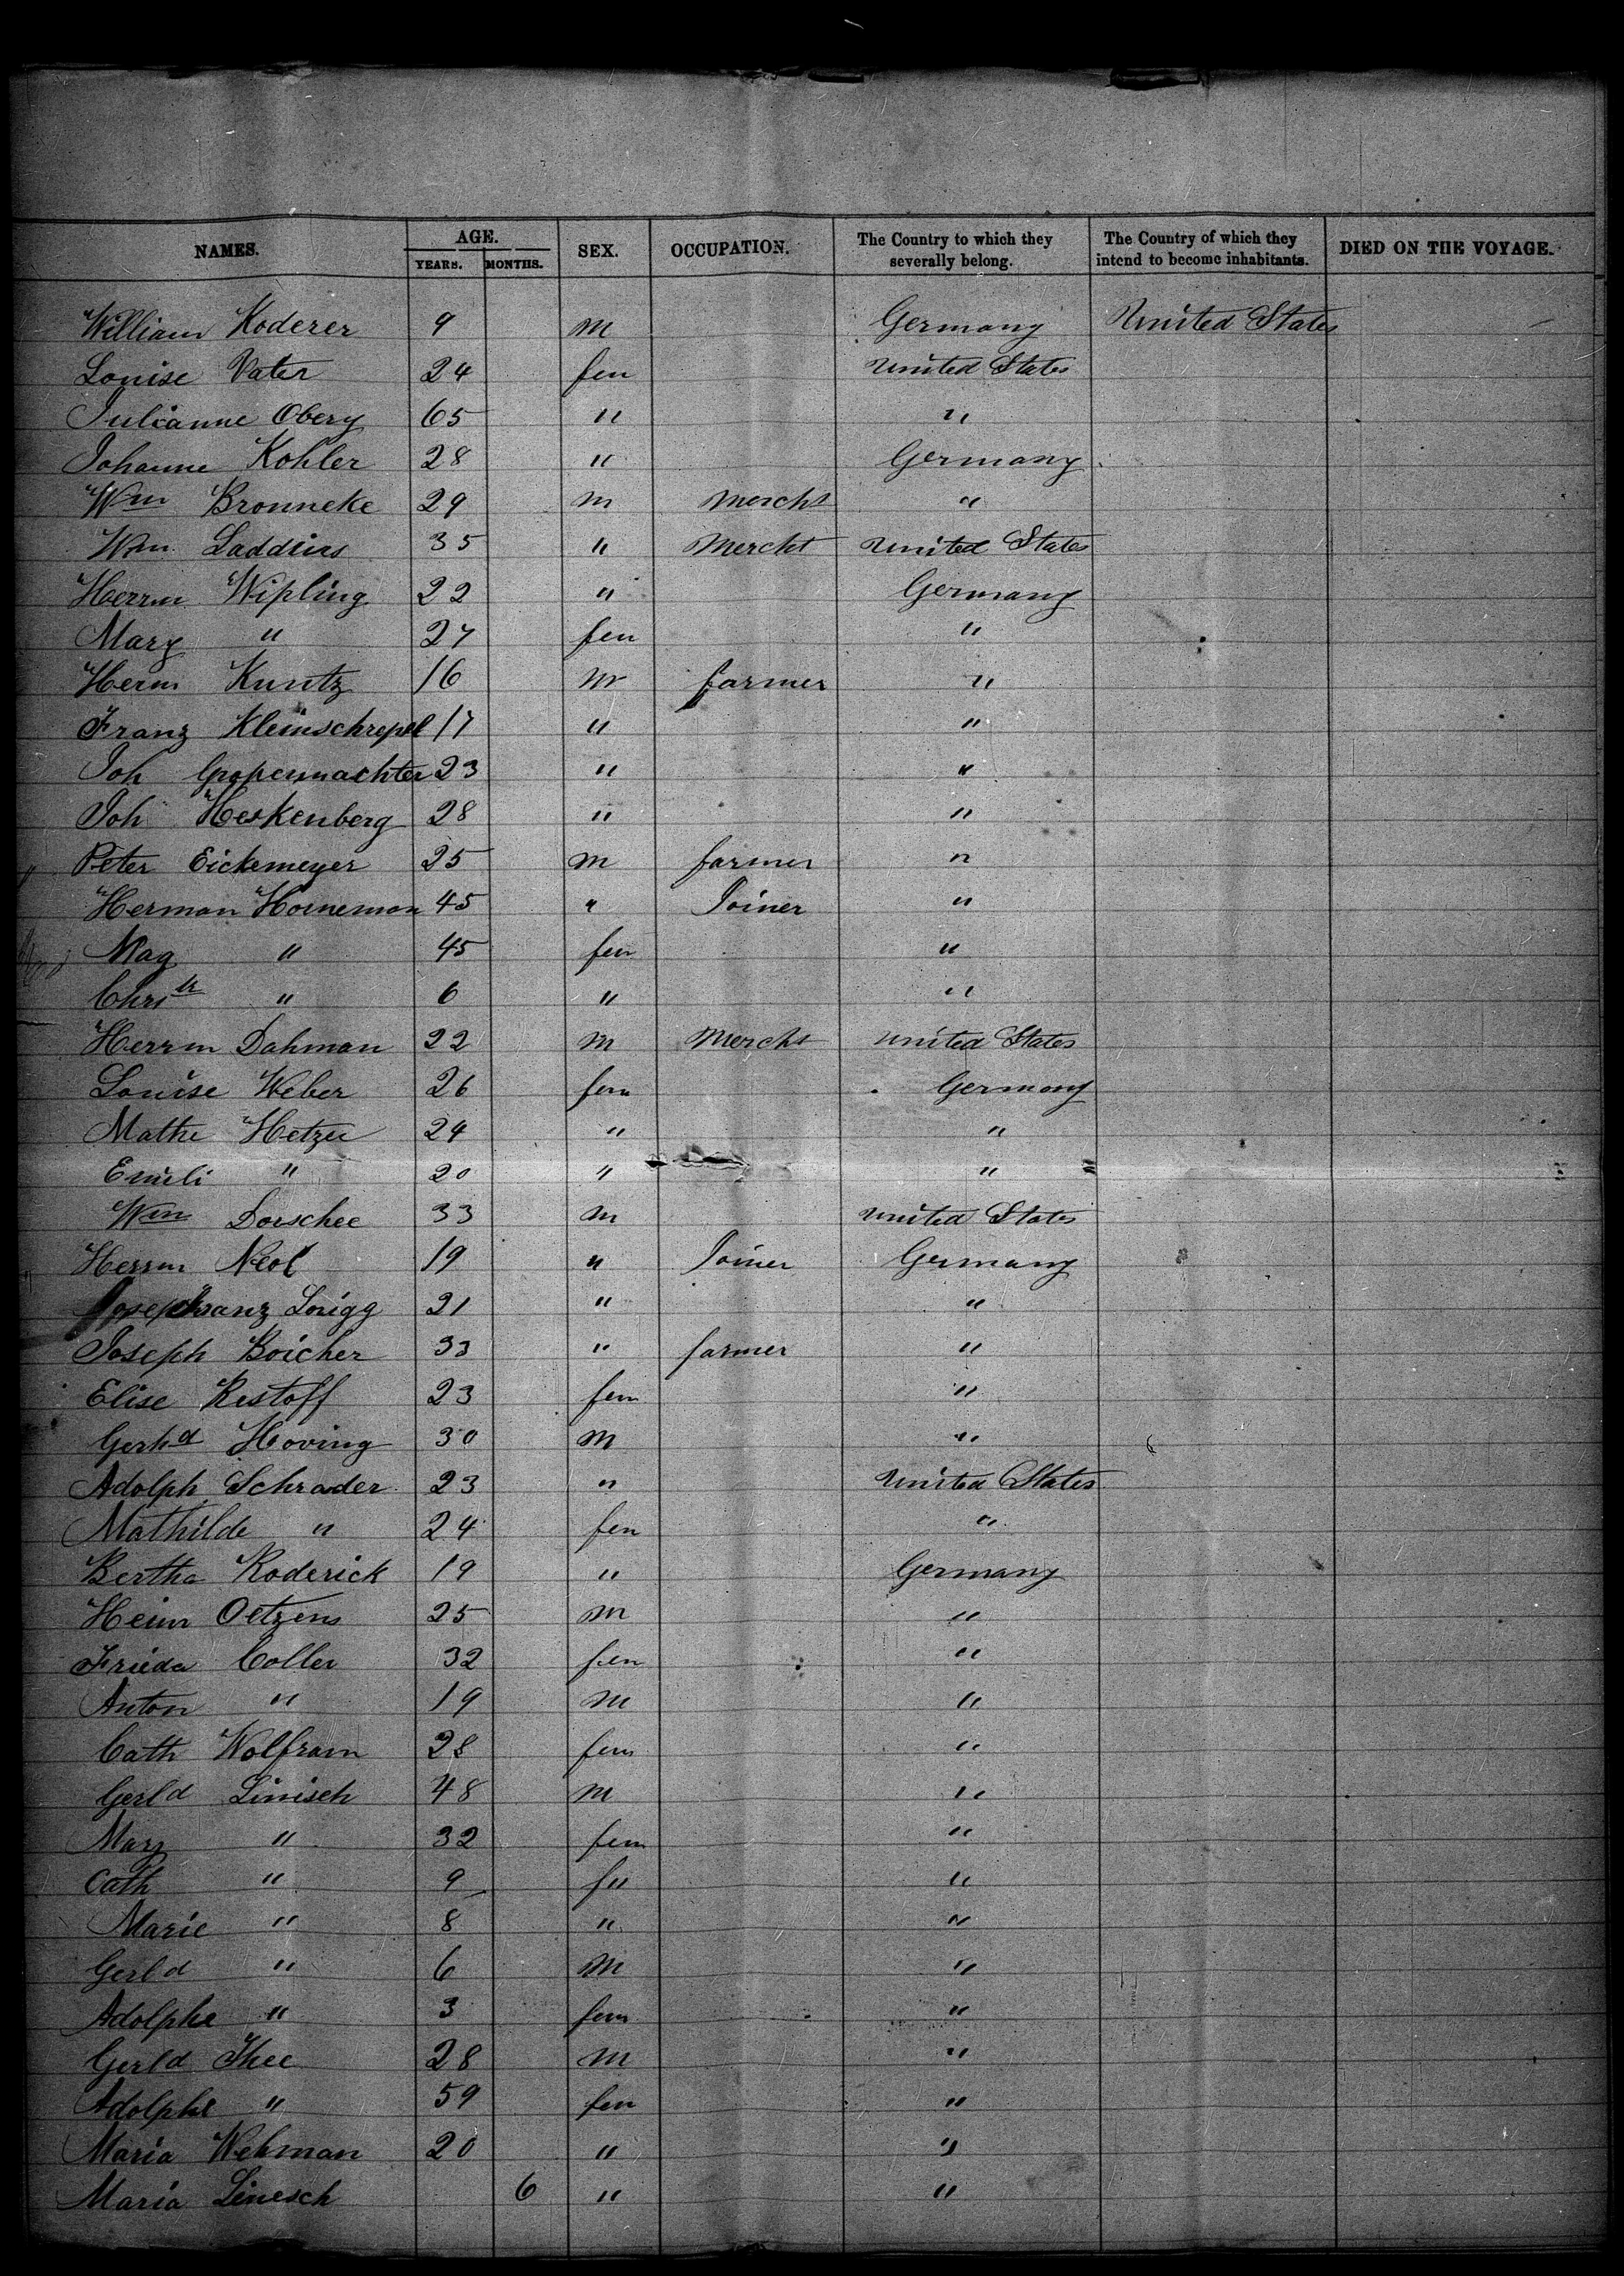 NAMES. AGE. SEX. OCCUPATION. The Country to which they severally belong. The Country of which they intend to become inhabitants. DIED ON THE VOYAGE.
YEARS. MONTHS.
William Koderer 9 m Germany United States —
Louise Vater 24 fem United States
Julianne Obery 65 " "
Johanne Kohler 28 " Germany
Wm Bronneke 29 m Mercht "
Wm Laddius 35 " Mercht United States
Herrm Wipling 22 " Germany
Mary " 27 fem "
Herm Kuntz 16 m farmer "
Franz 17 " "
Joh 23 " "
Joh Heskenberg 28 " "
Peter Eickemeyer 25 m farmer "
Herman Horneman 45 " Joiner "
Mag " 45 fem "
Christe " 6 " "
Herrm Dahman 22 m Mercht United States
Louise Weber 26 fem Germany
Mathe Hetzer 24 " "
Emeli " 20 " "
Wm Dorschee 33 m United States
Herrm 19 " Joiner Germany
Franz Lorigg 21 " "
Joseph Boicher 33 " farmer "
Elise Restoff 23 fem "
Gerhd Hoving 30 m "
Adolph Schrader 23 " United States
Mathilde " 24 fem "
Bertha Roderick 19 " Germany
Heinr Oetzens 25 m "
Frieda Coller 32 fem "
Anton " 19 m "
Cath Wolfram 28 fem "
Gerld Linisch 48 m "
Mary " 32 fem "
Cath " 9 fem "
Marie " 8 " "
Gerld " 6 m "
Adolphe " 3 fem "
Gerld Thee 28 m "
Adolphe " 59 fem "
Maria Wehman 20 " "
Maria Linesch 6 " "